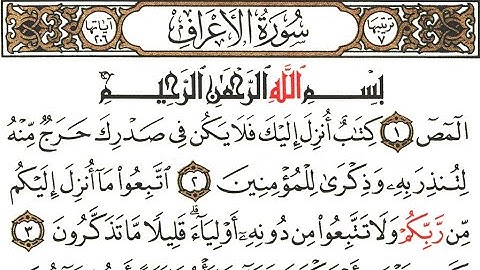 ترتيبها ٧
سُورَةُ الأَعْرَافِ
آياتها ٢٠٦
بِسْمِ اللَّهِ الرَّحْمَٰنِ الرَّحِيمِ
الٓمٓصٓ ١ كِتَٰبٌ أُنزِلَ إِلَيْكَ فَلَا يَكُن فِى صَدْرِكَ حَرَجٌ مِّنْهُ
لِتُنذِرَ بِهِۦ وَذِكْرَىٰ لِلْمُؤْمِنِينَ ٢ ٱتَّبِعُوا۟ مَآ أُنزِلَ إِلَيْكُم
مِّن رَّبِّكُمْ وَلَا تَتَّبِعُوا۟ مِن دُونِهِۦٓ أَوْلِيَآءَ ۗ قَلِيلًا مَّا تَذَكَّرُونَ ٣